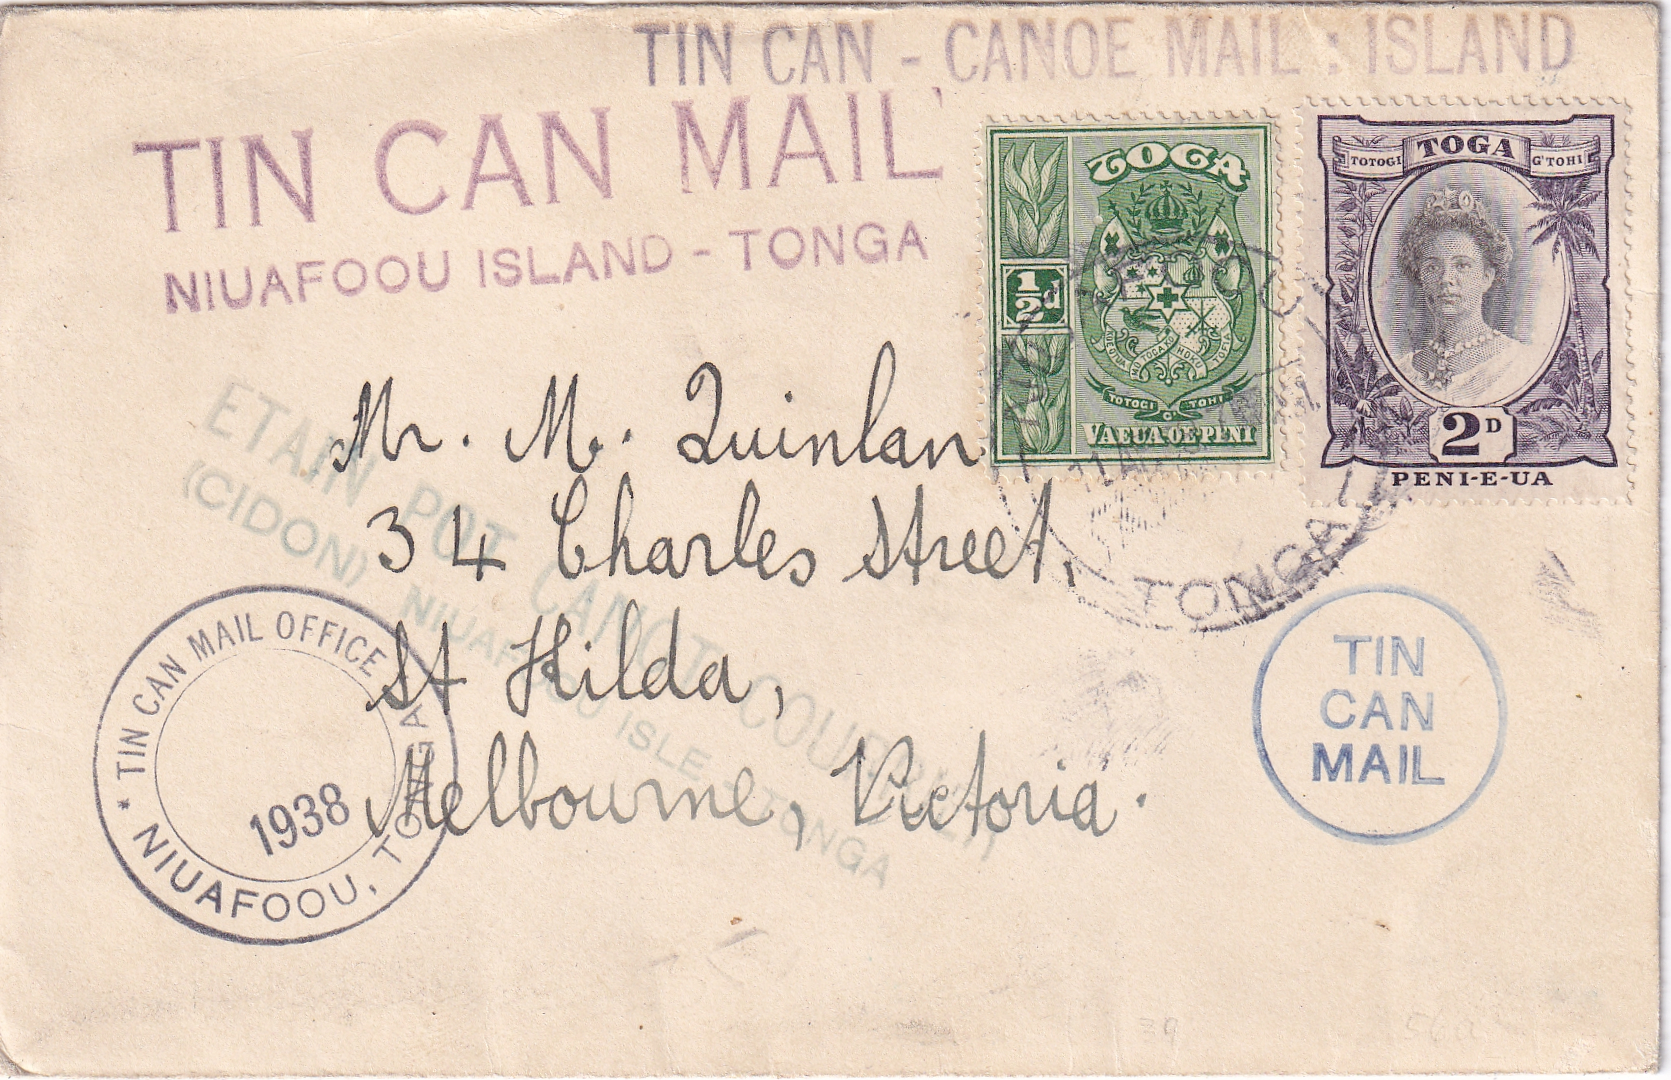 TIN CAN - CANOE MAIL : ISLAND
TIN CAN MAIL
NIUAFOOU ISLAND - TONGA
TOGA
1/2d
TOTOGI O' TOHI
VAEUA OE PENI
TOTOGI TOGA G'TOHI
2D
PENI-E-UA
TONGA
Mr. M. Quinlan
34 Charles Street,
St Hilda,
Melbourne, Victoria.
ETAIN POT CANOT COURRIER
(CIDON) NIUAFOOU ISLE - TONGA
TIN CAN MAIL OFFICE
1938
NIUAFOOU, TONGA
TIN
CAN
MAIL